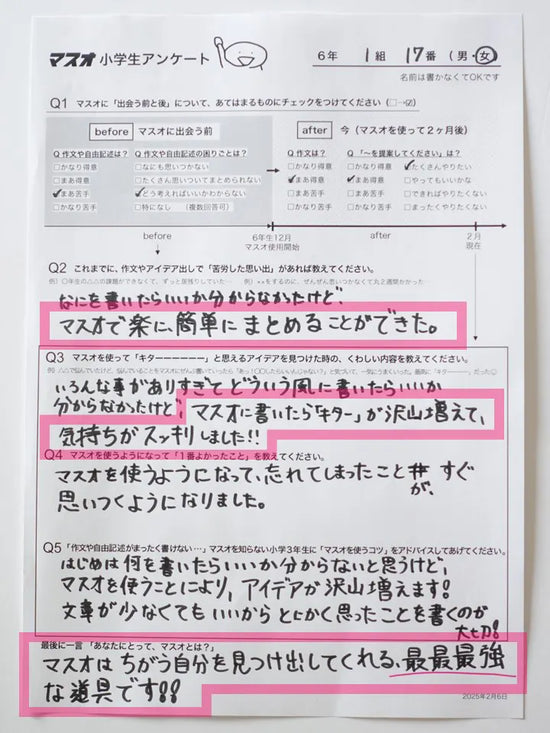 マスオ 小学生アンケート
6年 1組 17番 (男・女)
名前は書かなくてOKです
Q1 マスオに「出会う前と後」について、あてはまるものにチェックをつけてください(□→☑)
before マスオに出会う前
after 今(マスオを使って2ヶ月後)
Q 作文や自由記述は? Q 作文や自由記述の困りごとは?
Q 作文は? Q「〜を提案してください」は?
□かなり得意 □なにも思いつかない
□かなり得意 □かなり得意 ☑たくさんやりたい
□まあ得意 □たくさん思いついてまとめられない
☑まあ得意 ☑まあ得意 □やってもいいかな
☑まあ苦手 ☑どう考えればいいかわからない
□まあ苦手 □まあ苦手 □できればやりたくない
□かなり苦手 □特になし (複数回答可)
□かなり苦手 □かなり苦手 □まったくやりたくない
before
6年生12月
マスオ使用開始
after
2月
現在
Q2 これまでに、作文やアイデア出しで「苦労した思い出」があれば教えてください。
なにを書いたらいいか分からなかたけど、
マスオで楽に簡単にまとめることができた。
Q3 マスオを使って「キターーーーーー」と思えるアイデアを見つけた時の、くわしい内容を教えてください。
いろんな事がありすぎてどういう風に書いたらいいか
分からなかたけど、マスオに書いたら「キター」が沢山増えて、
気持ちがスッキリしました!!
Q4 マスオを使うようになって「1番よかったこと」を教えてください。
マスオを使うようになって、忘れてしまったことが、すぐ
思いつくようになりました。
Q5「作文や自由記述がまったく書けない…」マスオを知らない小学3年生に「マスオを使うコツ」をアドバイスしてあげてください。
はじめは何を書いたらいいか分からないと思うけど、
マスオを使うことにより、アイデアが沢山増えます!
文章が少なくてもいいからとにかく思ったことを書くのが
大切!
最後に一言「あなたにとって、マスオとは?」
マスオはちがう自分を見つけ出してくれる、最最最強
な道具です!!
2025年2月6日